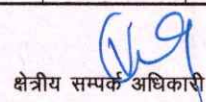 क्षेत्रीय सम्पर्क अधिकारी